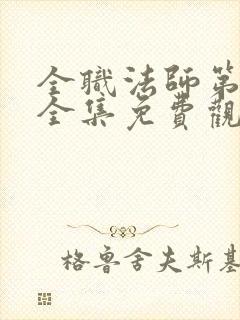 全職法師第
全集免費觀
格魯舍夫斯基